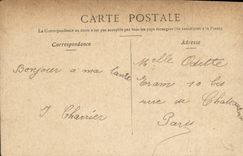 CARTE POSTALE
La Correspondance au recto n'est pas acceptée par tous les pays étrangers (Se renseigner à la Poste)
Correspondance
Adresse
Bonjour à ma tante
J Charrier
Melle Odette
10 bis
rue de
Paris